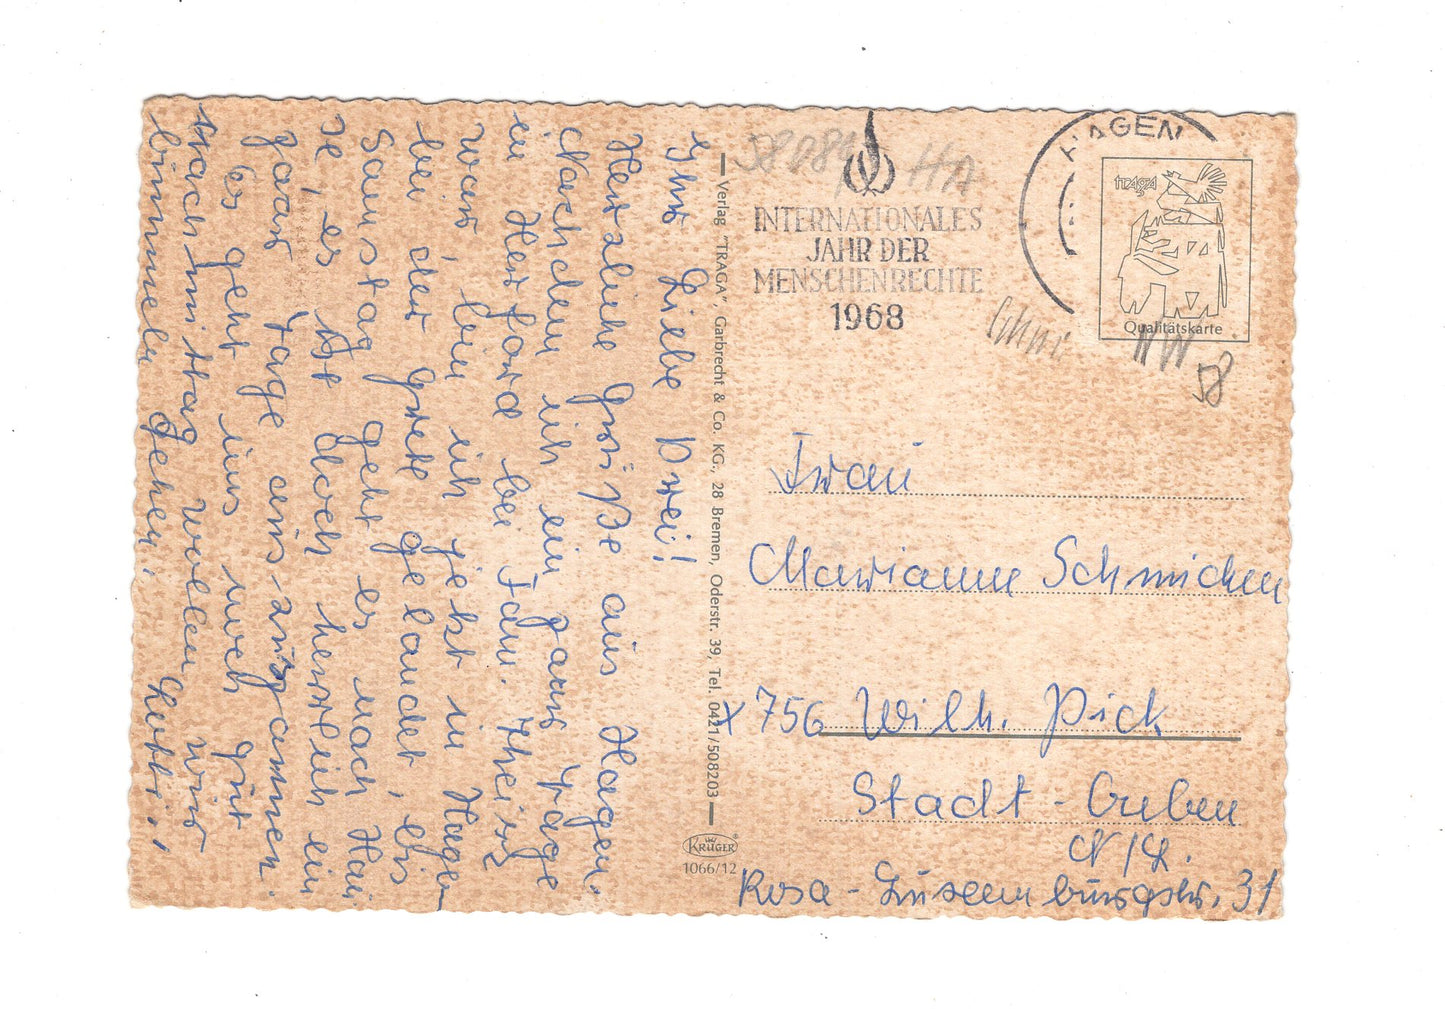 Ihr Liebe Drei!
Herzliche Grüße aus Hagen.
Nachdem ich ein paar Tage
in Herford bei Fam. Theiß
war, bin ich jetzt in Hagen
bei der Grete gelandet, bis
Samstag geht es nach Hau
se, es ist doch herrlich ein
paar Tage auszuspannen.
Es geht uns noch gut
Nachmittag wollen wir
bummeln gehen! Mutti
Verlag "TRAGA", Garbrecht & Co. KG., 28 Bremen, Oderstr. 39, Tel. 0421/508203
KRÜGER
1066/12
HA
INTERNATIONALES
JAHR DER
MENSCHENRECHTE
1968
HAGEN
TRAGA
Qualitätskarte
NW
58
Frau
Marianne Schmichen
x 756 Wilh. Pick
Stadt - Guben
N/L.
Rosa - Luxemburgstr. 31